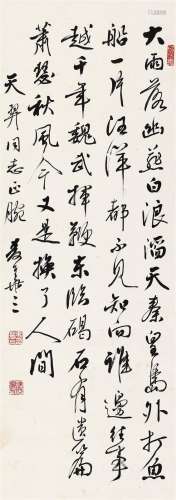 大雨落幽燕白浪滔天秦皇島外打魚
船一片汪洋都不見知向誰邊往事
越千年魏武揮鞭東臨碣石有遺篇
蕭瑟秋風今又是換了人間
天羿同志正腕